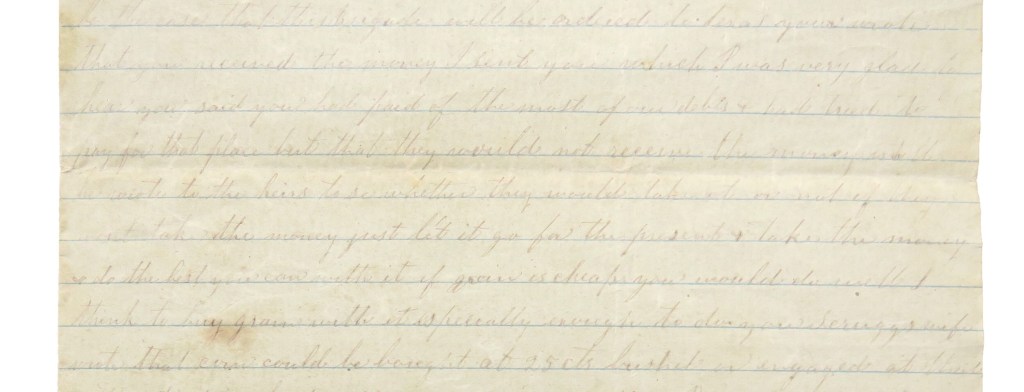 that this brigade will be ordered to texas you wrote
that you received the money I sent you which I was very glad to
hear you said you had paid of the most of our debts & had tried to
pay for that place but that they would not receive the money
wrote to the heirs to se whether they would take it or not if
take the money just let it go for the present & take the money
& do the best you can with it if grain is cheap you would do well I
think to buy grain with it especially enough to do you Scruggs wife
wrote that corn could be bought at 25 cts bushel or engaged at